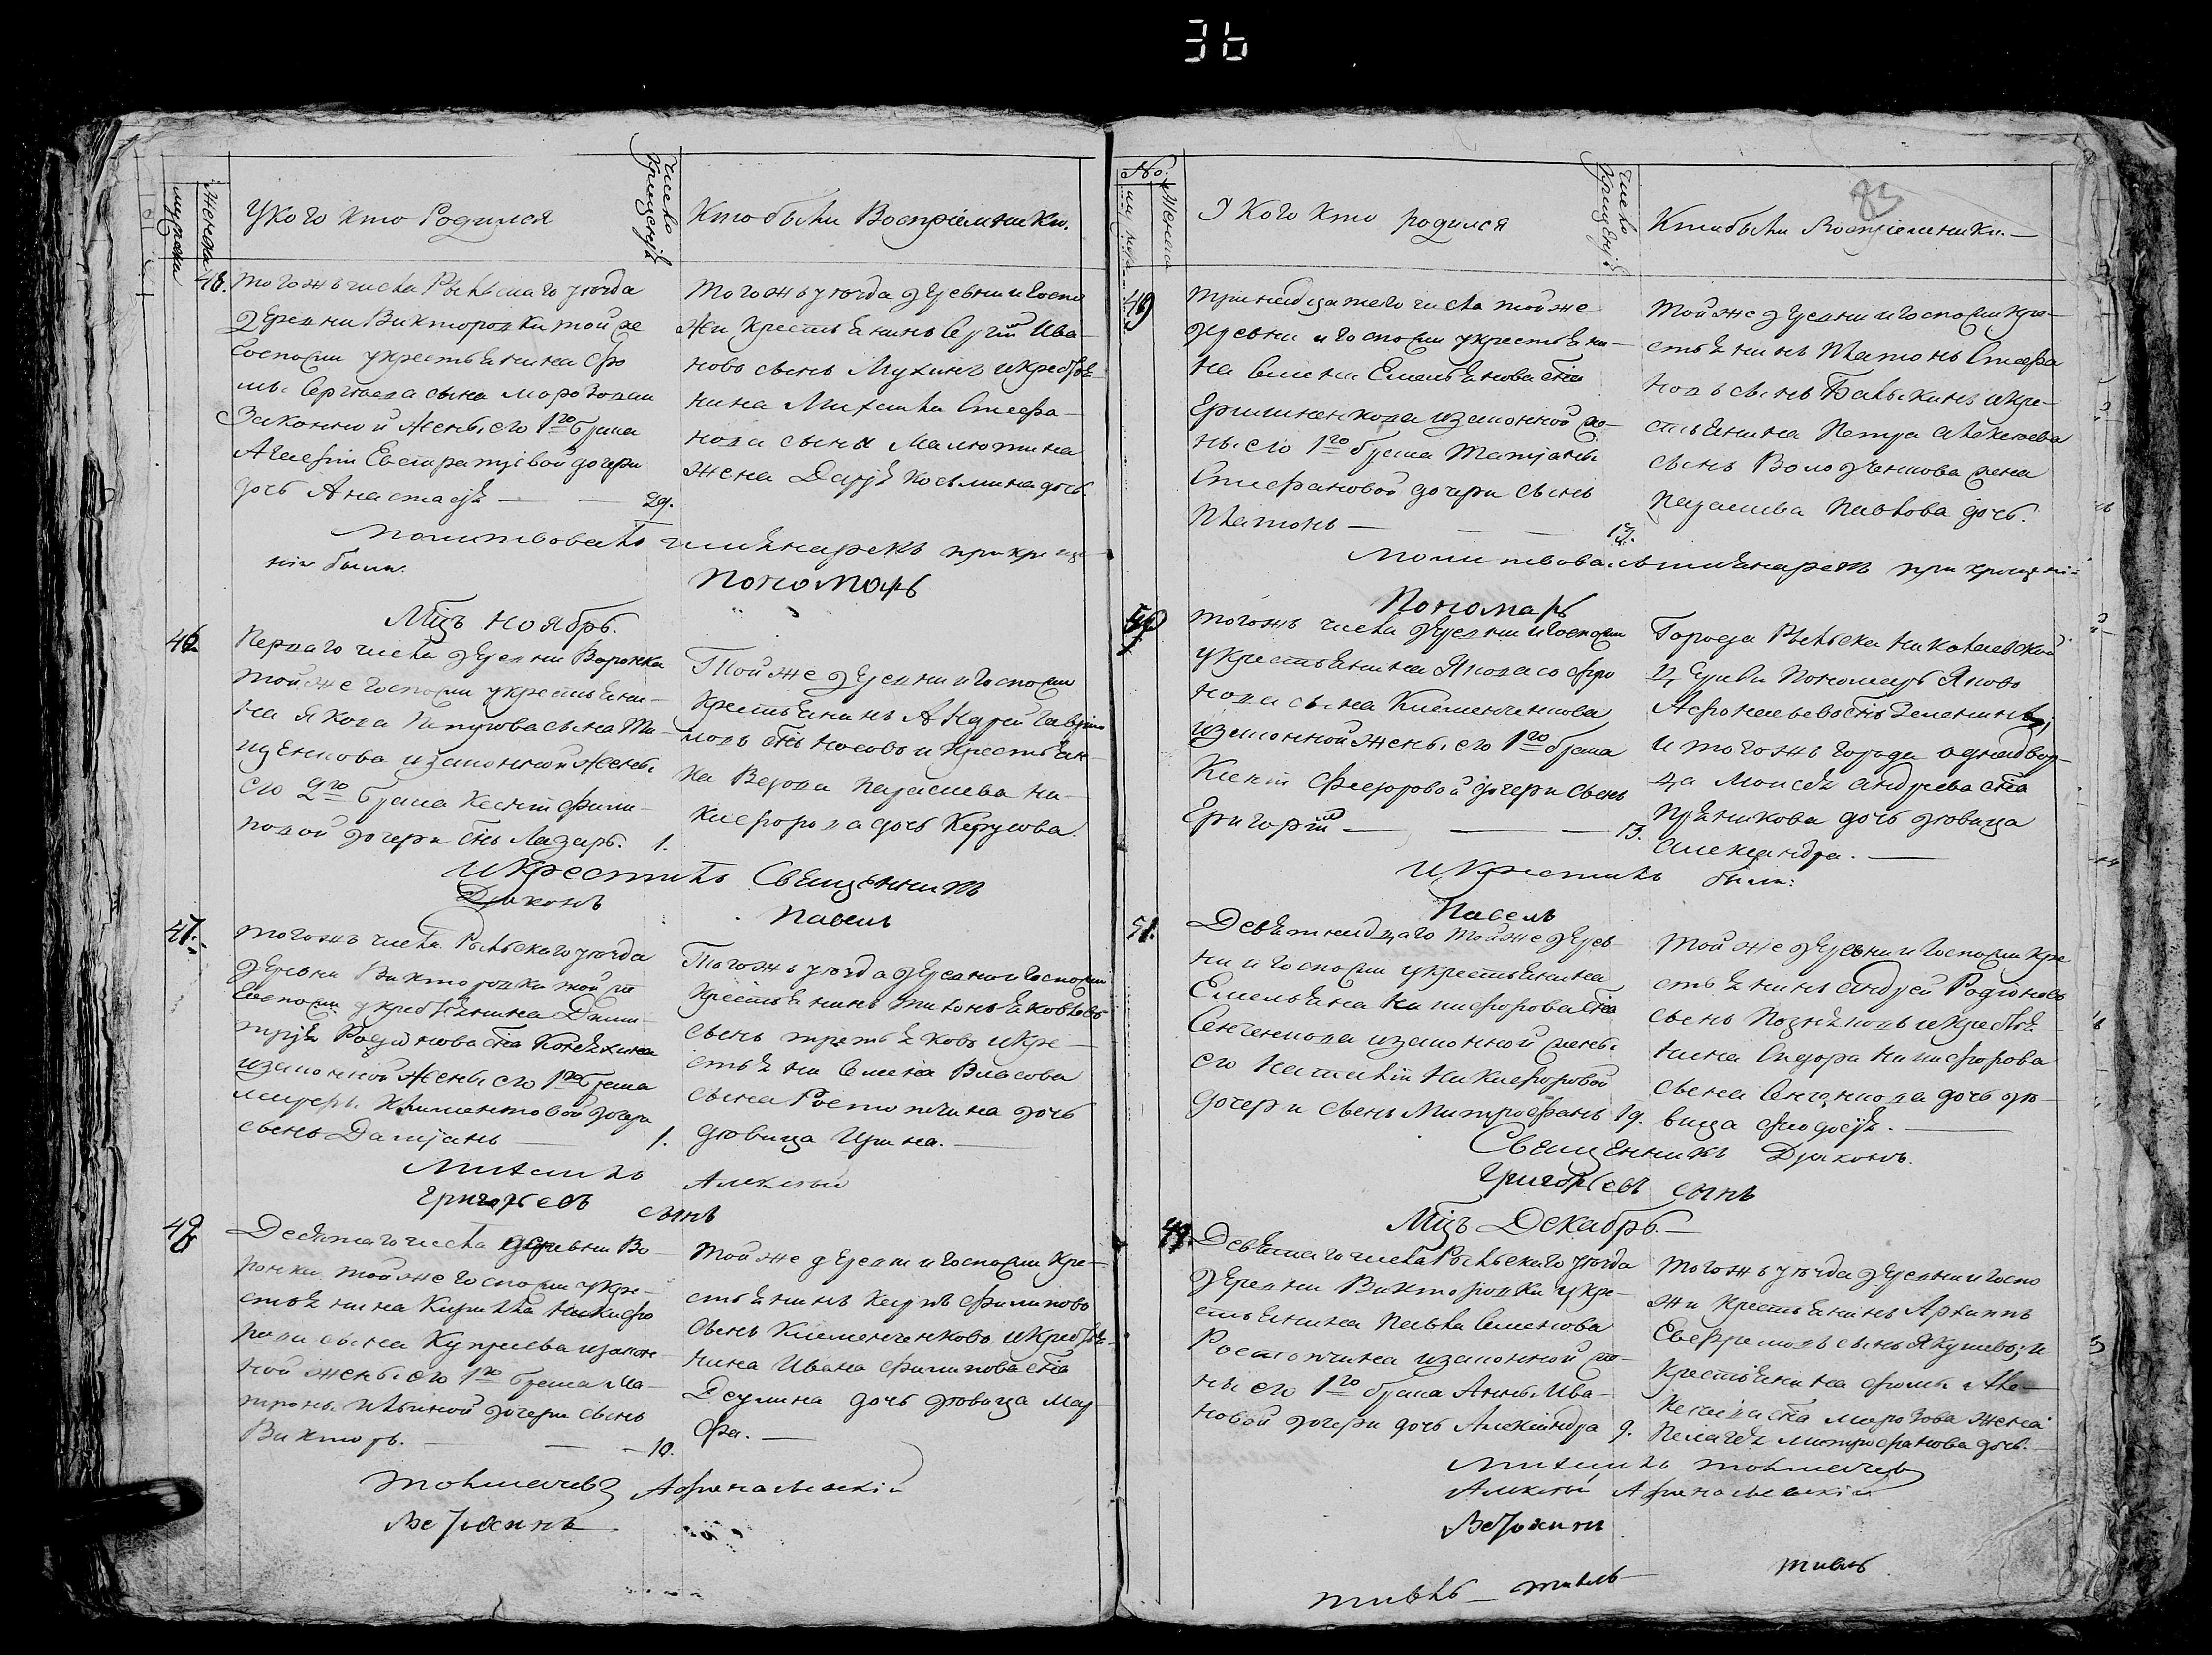 36
Женска
мужеска
У кого кто Родился
Число Крещенія
Кто были Воспріемники.
48.
того жъ числа Рыльскаго уѣзда
деревни Викторовки той же
Госпожи у крестьянина Фо
мы Сергѣева сына Морозова
Законной жены его 1го брака
Агаѳіи Евстратіевой дочери
дочь Анастасія — 29.
того жъ уѣзда деревни и Госпо
жи Крестьянинъ Сергій Ива
новъ сынъ Мухинъ и крестья
нина Михаила Стефа
нова сына Малютина
жена Дарья Косьмина дочь.
Молитвовалъ имянарекъ при креще
ніи были.
Пономарь
Мцъ Ноябрь.
46
Перваго числа деревни Воронка
той же Госпожи у крестьяни
на Якова сына
щенкова и законной жены
его 2го брака Ксеніи Фили
повой дочери снъ Лазарь. 1.
Той же деревни и Госпожи
Крестьянинъ Андрей Гавріи
ловъ снъ Носовъ и Крестьян
ка Вдова Параскева Ни
кифорова дочь
и крестилъ Священникъ
Діаконъ
Павелъ
47.
того жъ числа Рыльскаго уѣзда
деревни Викторовки той же
Госпожи у крестьянина Дими
трія Родіонова сна
и законной жены его 1го брака
Климентовой дочери
сынъ Даміанъ — 1.
Того жъ уѣзда деревни и Госпожи
Крестьянинъ Тихонъ Яковлевъ
сынъ Третьяковъ и кре
стьянина Власова
сына Растопчина дочь
дѣвица Ирина. —
Михаилъ Алексѣй
Григорьевъ сынъ
48
Десятаго числа деревни Во
ронка той же Госпожи у кре
стьянина Кирилла Никифо
рова сына и закон
ной жены его 1го брака Ма
троны Ильиной дочери сынъ
Викторъ. — 10.
Той же деревни и Госпожи Кре
стьянинъ Карпъ Филиповъ
сынъ Клеменченковъ и крестья
нина Ивана Филипова сна
дочь дѣвица Мар
фа. —
Толмачевъ Афанасьевскій
Ветохинъ
No.
Женска
У Кого кто родился
Число Крещенія
Кто были Воспріемники. —
83
49
тринадцатаго числа той же
деревни и Госпожи у крестьяни
на Семена Емельянова сна
и законной же
ны его 1го брака Татіаны
Стефановой дочери сынъ
Платонъ — 13.
Той же деревни и Госпожи кре
стьянинъ Платонъ Стефа
новъ сынъ Балыкинъ и кре
стьянина Петра Алексѣева
сына жена
Параскева Павлова дочь.
Молитвовалъ имянарекъ при крещеніи
Пономарь
50
того жъ числа деревни и Госпожи
у Крестьянина Якова Софро
нова сына Клеменченкова
и законной жены его 1го брака
Ксеніи Феодоровой дочери сынъ
Григорій — 13.
Города Рыльска Николаевской
Церкви Пономарь Яковъ
Афонасьевъ снъ Зеленинъ;
и того жъ города однодвор
ца Моисея Андреева сна
Пряникова дочь дѣвица
Александра. —
и крестилъ были:
Павелъ
51.
Девятнадцаго той же дерев
ни и Госпожи у крестьянина
Емельяна Никифорова сна
Сенченкова и законной жены
его Наталіи Никифоровой
дочери сынъ Митрофанъ 19.
Той же деревни и Госпожи кре
стьянинъ Андрей Родіоновъ
сынъ Позняковъ и крестья
нина Сидора Никифорова
сына Сенченкова дочь дѣ
вица Феодосія. —
Священникъ Діаконъ.
Григорьевъ сынъ
Мцъ Декабрь. —
49.
Девятаго числа Рыльскаго уѣзда
деревни Викторовки у кре
стьянина Павла Семенова
Растопчина и законной же
ны его 1го брака Анны Ива
новой дочери дочь Александра 9.
того жъ уѣзда деревни и Госпо
жи крестьянинъ Архиппъ
Евфремовъ сынъ Якушевъ; и
крестьянина Фомы Але
ксѣева сна Морозова жена
Пелагея Митрофанова дочь.
Михаилъ Толмачевъ
Алексѣй Афанасьевскій
Ветохинъ